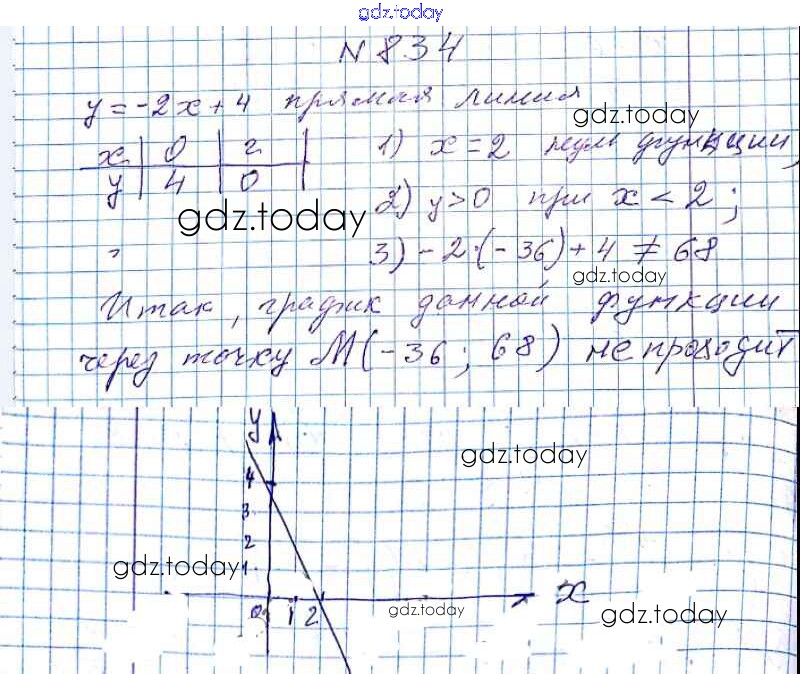 gdz.today
N 834
y = -2x + 4 прямая линия
gdz.today
x | 0 | 2
y | 4 | 0
1) x = 2 нуль функции,
gdz.today
2) y > 0 при x < 2;
3) -2·(-36) + 4 ≠ 68
gdz.today
Итак, график данной функции
через точку M(-36; 68) не проходит
y
gdz.today
4
3
2
gdz.today
1
x
0 1 2
gdz.today
gdz.today